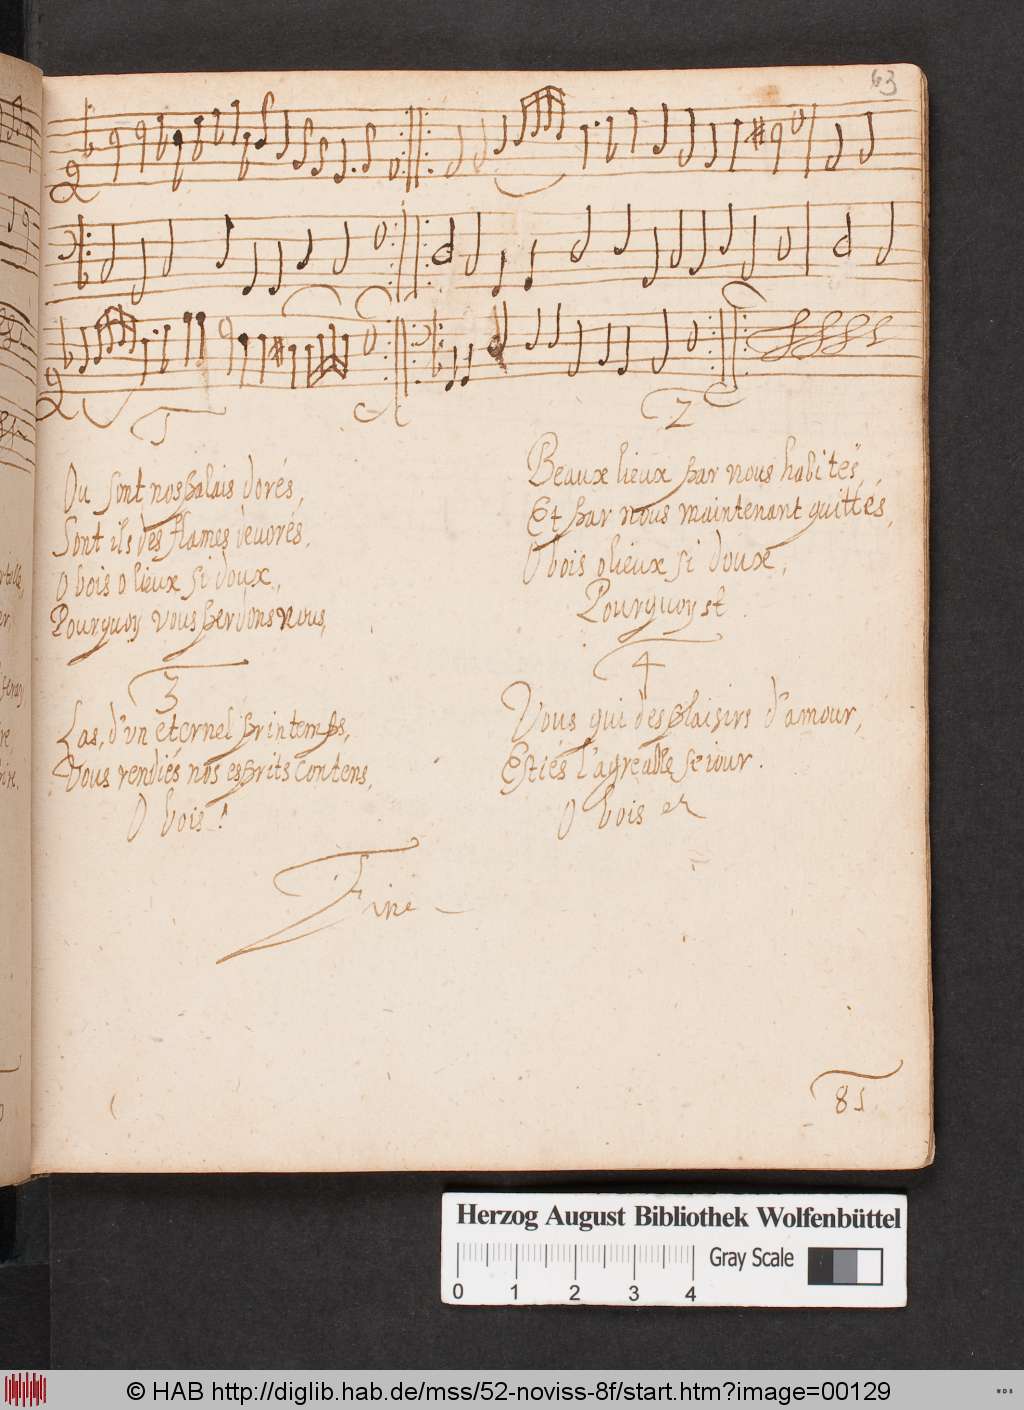 63
1
Ou sont nos palais dorés,
Sont ils des flames devorés,
O bois o lieux si doux,
Pourquoy vous perdons nous,
2
Beaux lieux par nous habités,
Et par nous maintenant quittés,
O bois o lieux si doux,
Pourquoy et
3
Las, d'un eternel printemps,
Vous rendiés nos esprits contens,
O bois
4
Vous qui des plaisirs d'amour,
Estiés l'agreable seiour.
O bois et
Fine
81
Herzog August Bibliothek Wolfenbüttel
Gray Scale
0 1 2 3 4
© HAB http://diglib.hab.de/mss/52-noviss-8f/start.htm?image=00129